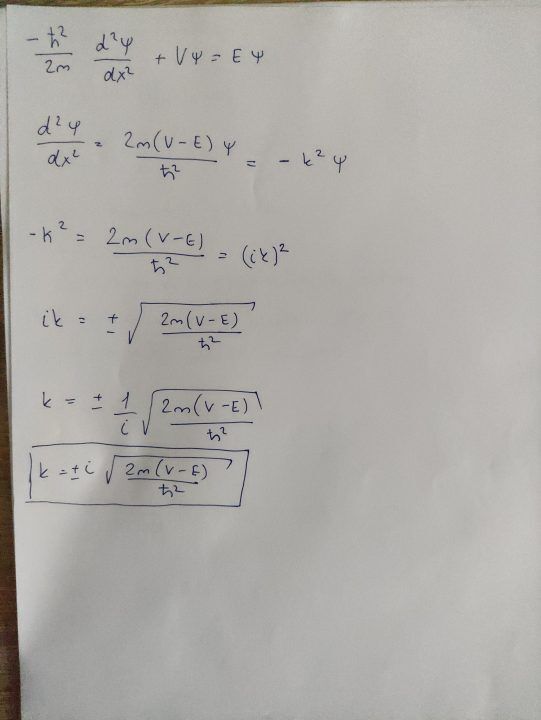 -ħ²/2m d²ψ/dx² + Vψ = Eψ
d²ψ/dx² = 2m(V-E)ψ/ħ² = -k²ψ
-k² = 2m(V-E)/ħ² = (ik)²
ik = ±√(2m(V-E)/ħ²)
k = ± 1/i √(2m(V-E)/ħ²)
k = ±i √(2m(V-E)/ħ²)